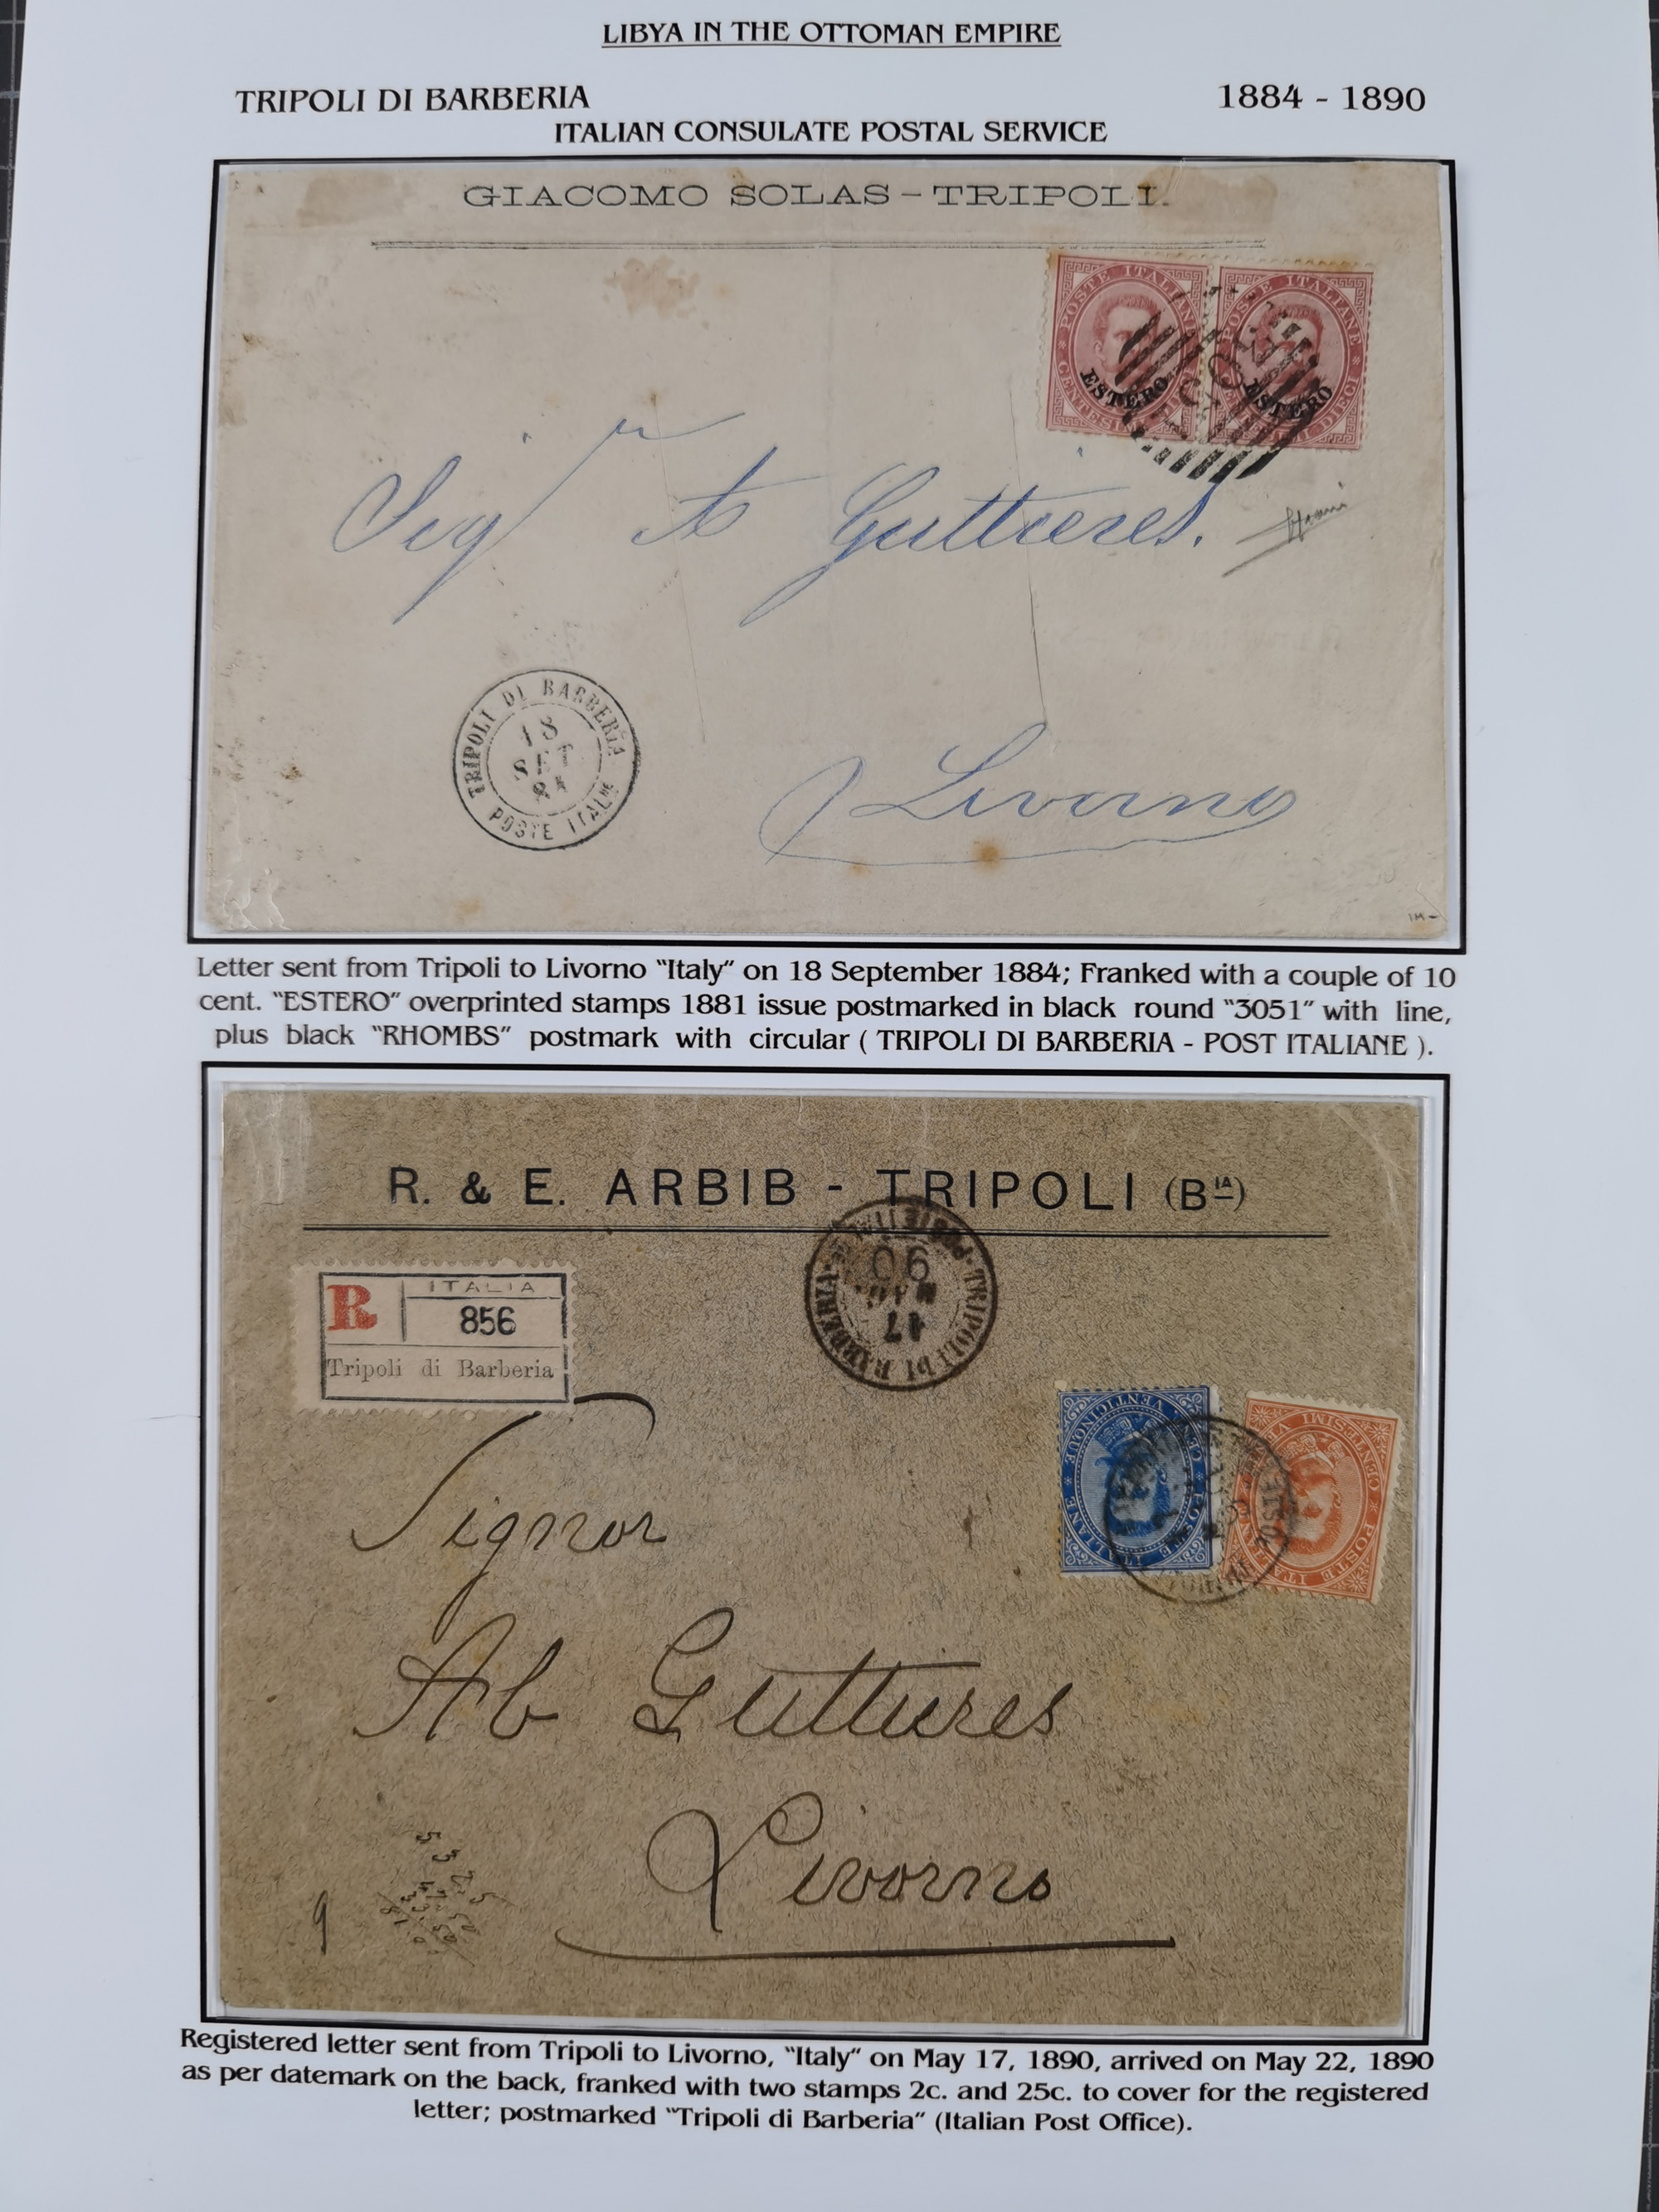 LIBYA IN THE OTTOMAN EMPIRE
TRIPOLI DI BARBERIA
1884 - 1890
ITALIAN CONSULATE POSTAL SERVICE
GIACOMO SOLAS - TRIPOLI.
POSTE ITALIANE
ESTERO
POSTE ITALIANE
ESTERO
Sigr
Guttieres.
TRIPOLI DI BARBERIA
18
POSTE ITALNE
Livorno
Letter sent from Tripoli to Livorno "Italy" on 18 September 1884; Franked with a couple of 10
cent. "ESTERO" overprinted stamps 1881 issue postmarked in black round "3051" with line,
plus black "RHOMBS" postmark with circular ( TRIPOLI DI BARBERIA - POST ITALIANE ).
R. & E. ARBIB - TRIPOLI (BIA)
R
ITALIA
856
Tripoli di Barberia
TRIPOLI DI BARBERIA
17
MAG
90
POSTE ITALIANE
CENT. VENTICINQUE
Signor
Ab Guttieres
Livorno
9
Registered letter sent from Tripoli to Livorno, "Italy" on May 17, 1890, arrived on May 22, 1890
as per datemark on the back, franked with two stamps 2c. and 25c. to cover for the registered
letter; postmarked "Tripoli di Barberia" (Italian Post Office).